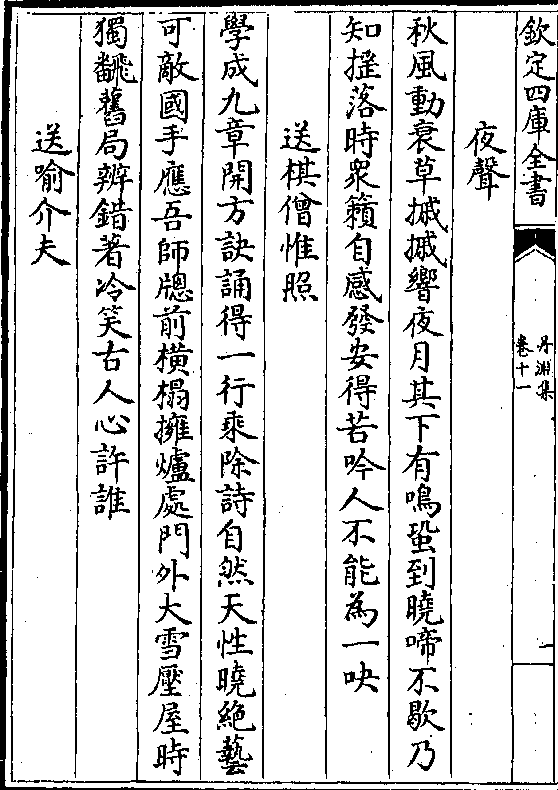 欽定四庫全書
丹淵集
卷十一
一
夜聲
秋風動衰草摵摵響夜月其下有鳴蛩到曉啼不歇乃
知揺落時衆籟自感發安得苦吟人不能為一吷
送棋僧惟照
學成九章開方訣誦得一行乘除詩自然天性曉絶藝
可敵國手應吾師牕前横榻擁爐處門外大雪壓屋時
獨飜舊局辨錯著冷笑古人心許誰
送喻介夫